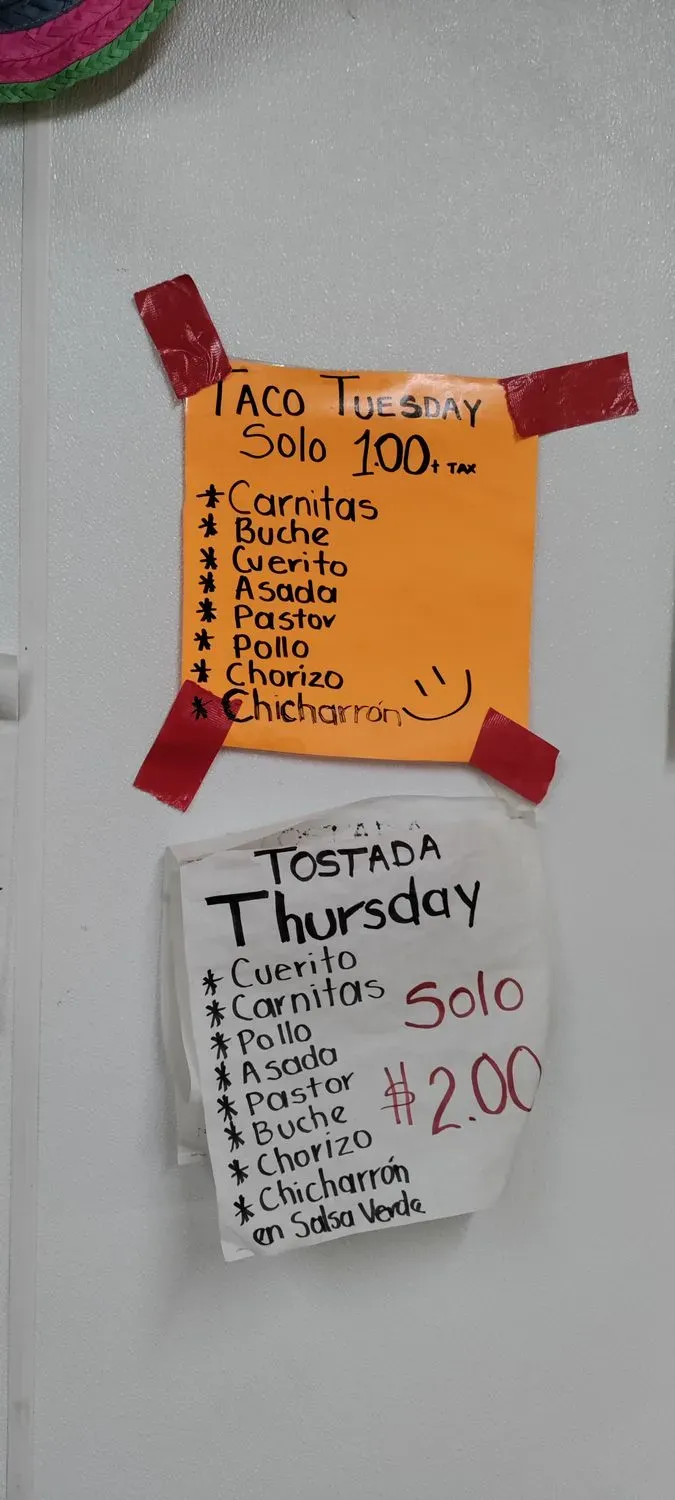 TACO TUESDAY
Solo 1.00 + TAX
* Carnitas
* Buche
* Cuerito
* Asada
* Pastor
* Pollo
* Chorizo
* Chicharrón
TOSTADA
Thursday
* Cuerito
* Carnitas
* Pollo
* Asada
* Pastor
* Buche
* Chorizo
* Chicharrón
en Salsa Verde
Solo
$2.00